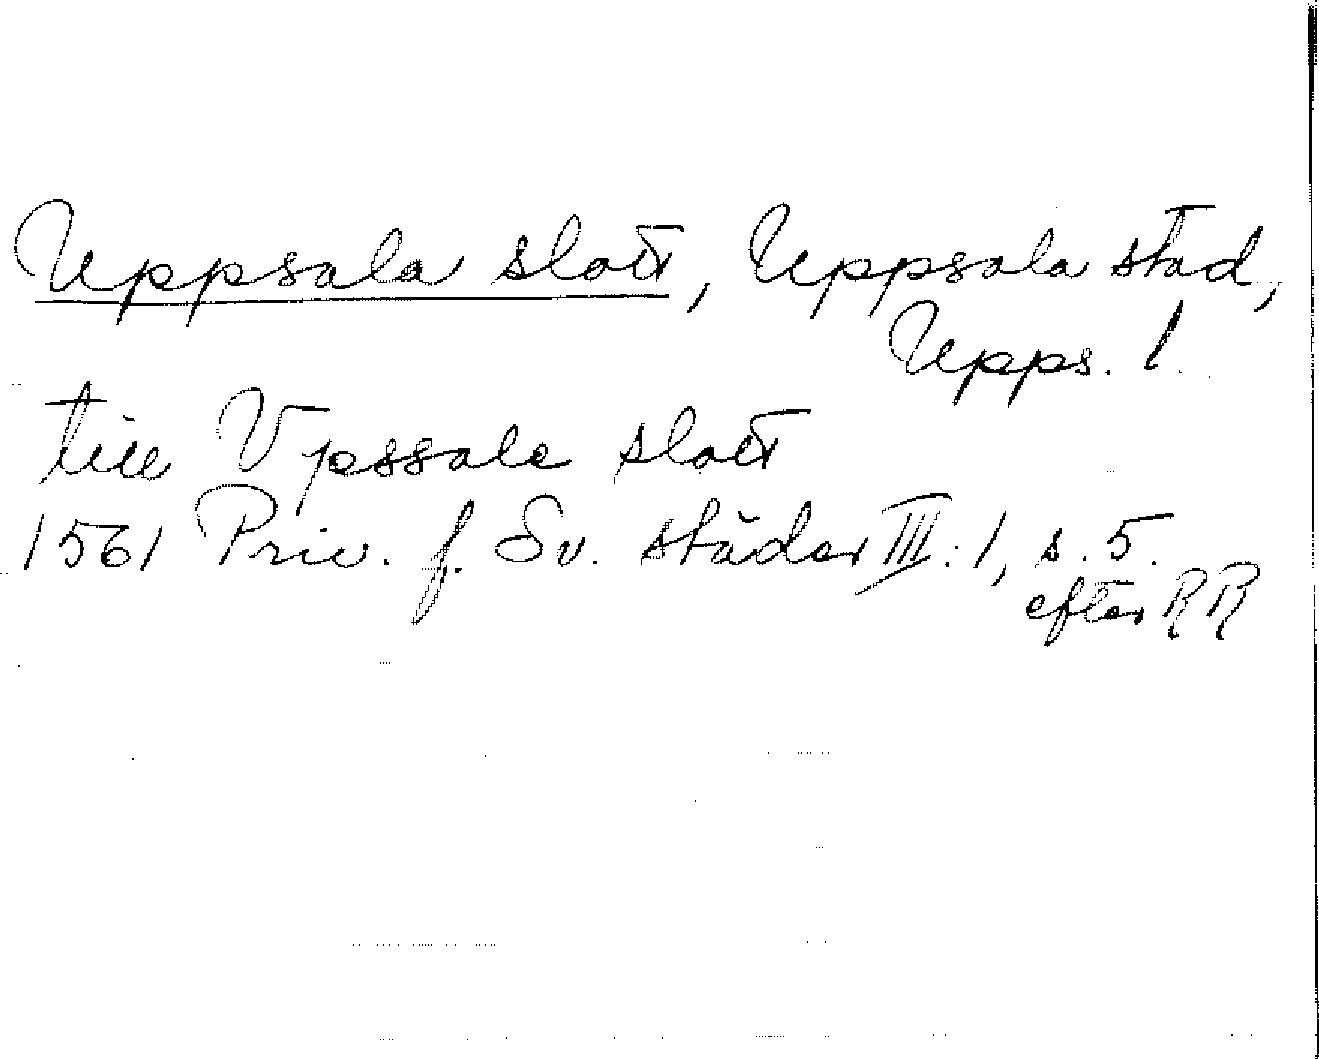 Uppsala slott, Uppsala stad,
Upps. l.
till Vpssala slott
1561 Priv. f. Sv. städer III:1, s. 5.
efter RR